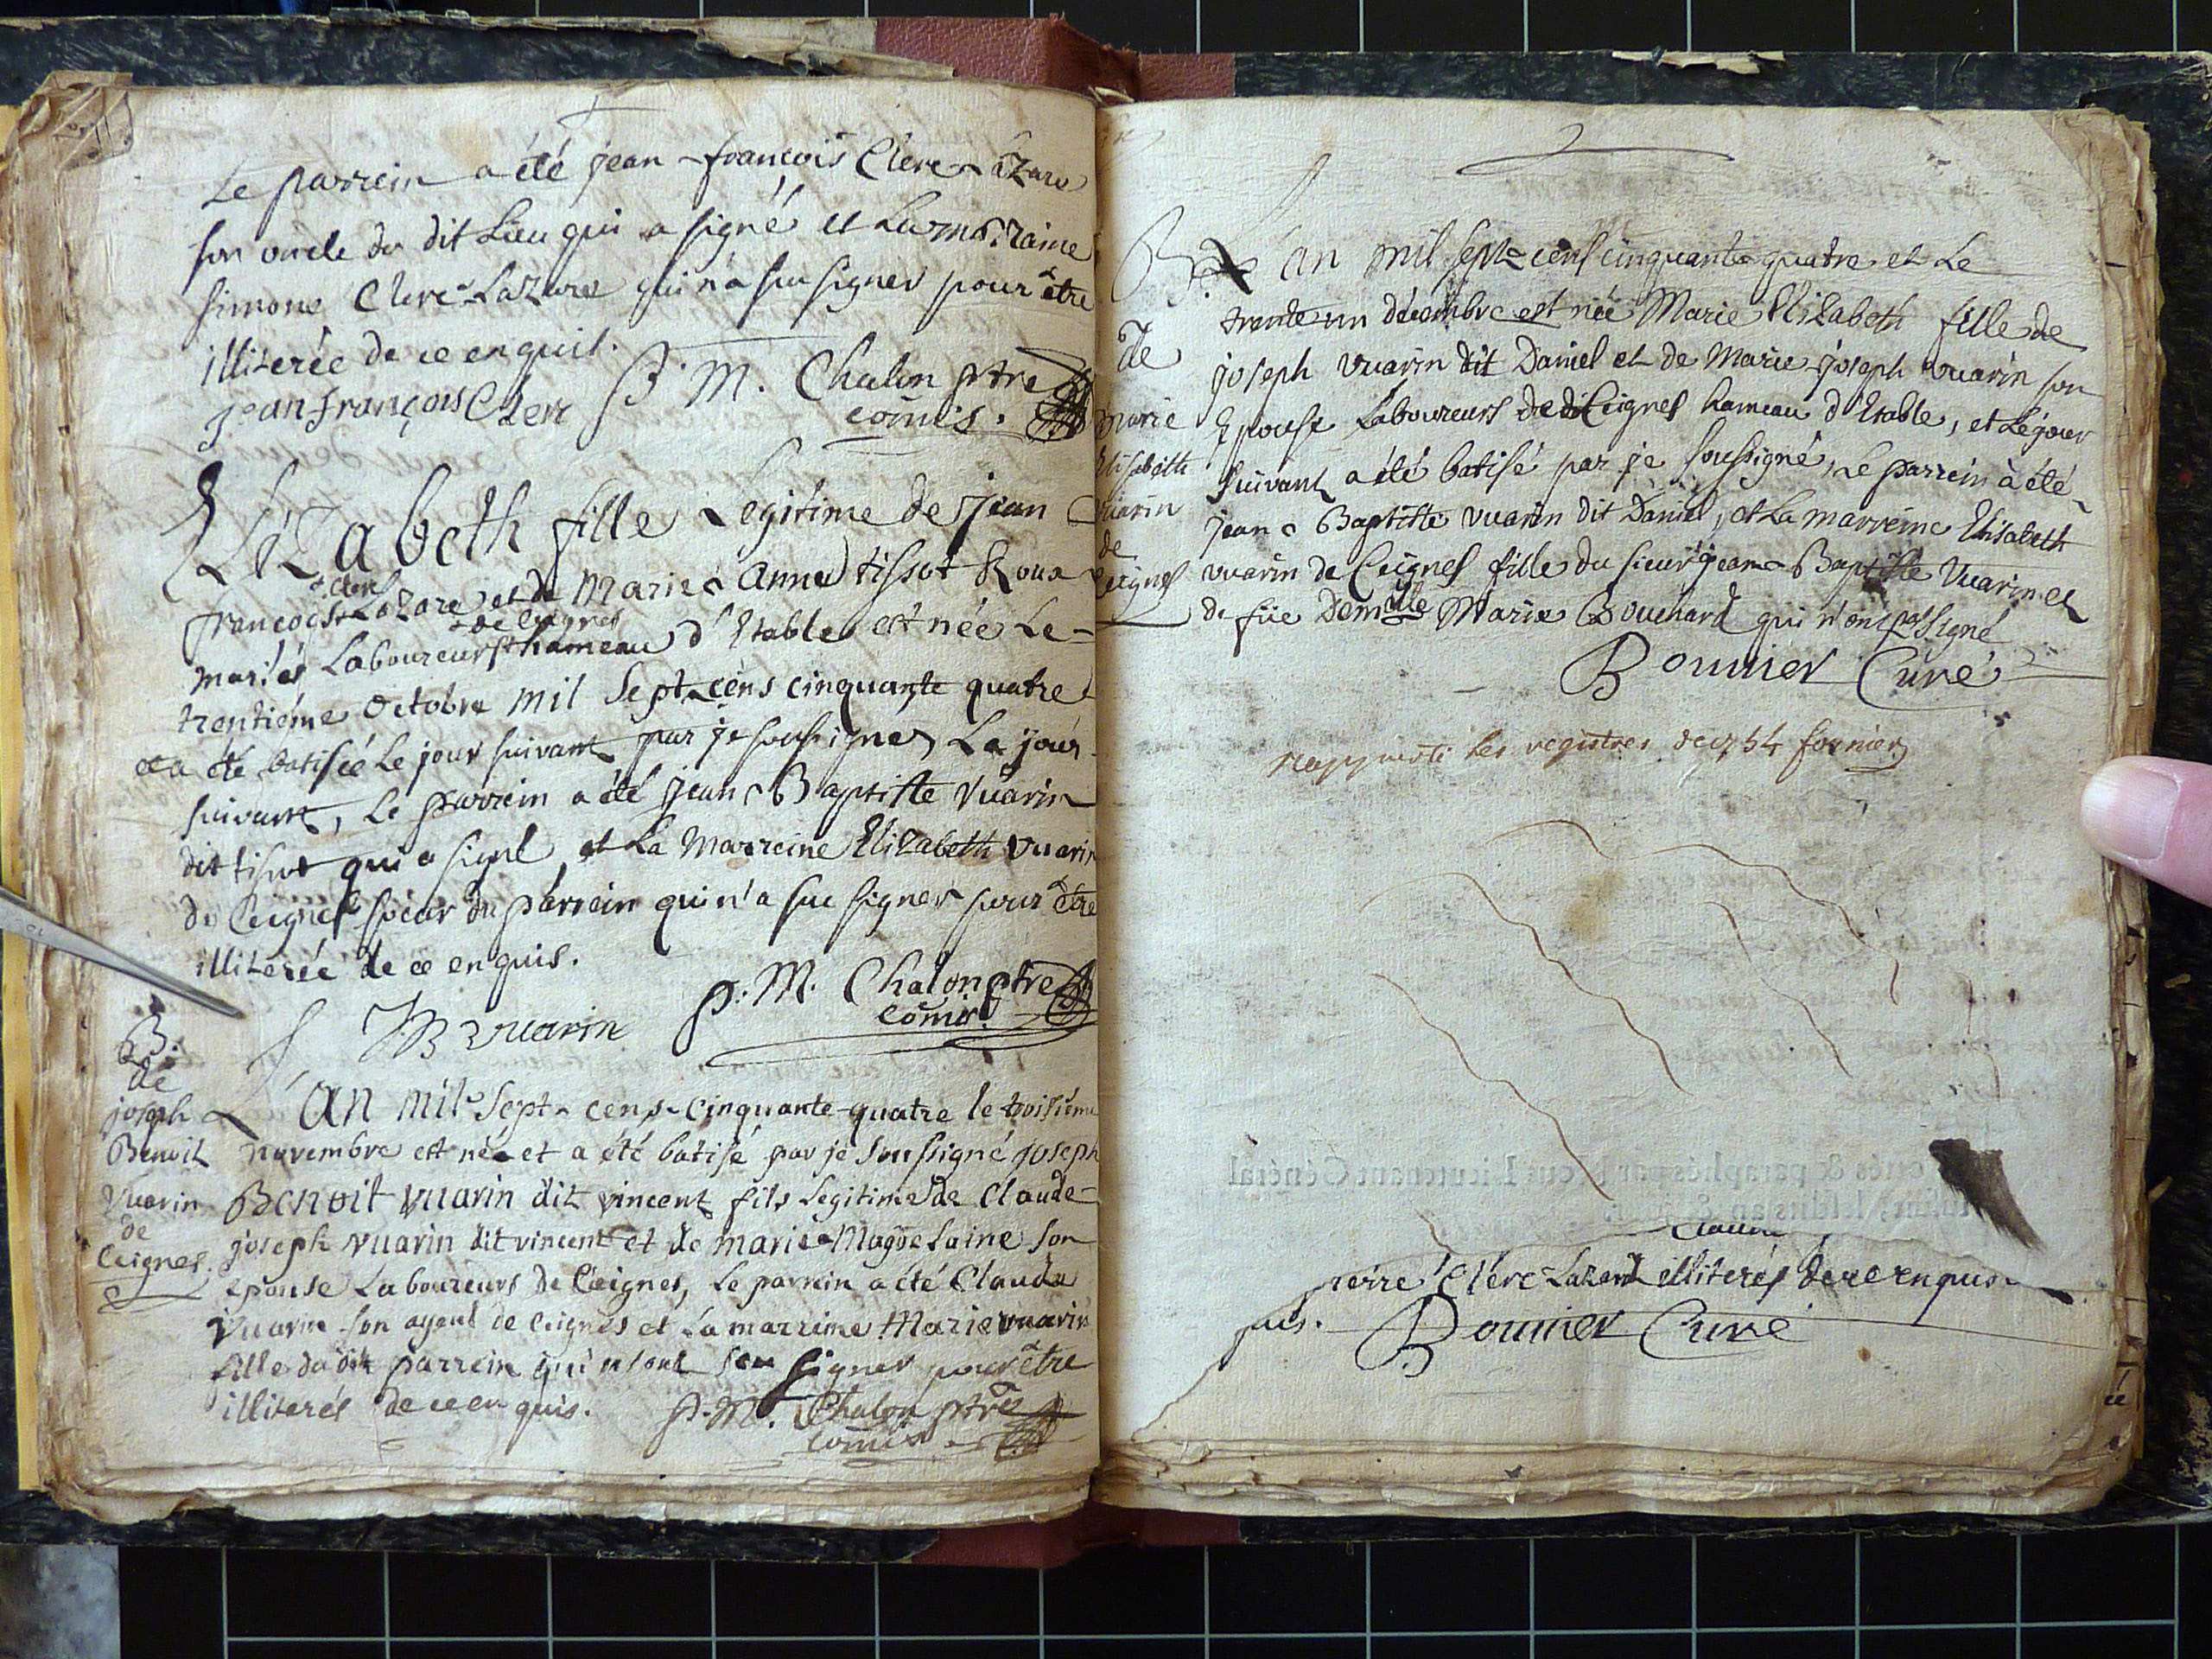 Le parrein a été jean-francois Clerc-Lazare
son oncle du dit Lieu qui a signé et La marraine
simone Clerc-Lazare qui n'a su signer pour être
illiterée de ce enquis.
jean françois Clerc P. M. Chalon ptre
comis.
Elizabeth fille Legitime de jean
+ clerc
francoes + Lazare et de Marie Anne tissot Roux
+ de Ceignes
mariés Laboureurs + hameau d'Etables est née Le
trentiéme Octobre mil Sept cens cinquante quatre
et a été batisée Le jour suivant par je soussigner La jour
suivant, Le parrein a été jean Baptiste Vuarin
dit tisot qui a signé et La Marreine Elizabeth Vuarin
de Ceignes soeur du parrein qui n'a sue signer pour être
illiterée de ce enquis.
JB vuarin P. M. Chalon ptre
comis.
B.
de
joseph
Benoit
Vuarin
de
Ceignes.
L'An mil Sept cens cinquante-quatre le troisiéme
novembre est née et a été batisé par je soussigné joseph
Benoit vuarin dit vincent fils Legitime de Claude
joseph vuarin dit vincent et de marie Magdelaine son
epouse Laboureurs de Ceignes, Le parrein a été Claude
Vuarin son ayeul de ceignes et La marreine Marie vuarin
fille du dit parrein qui n'ont seu signer pour être
illiterés de ce en quis. P. M. Chalon ptre
comis
B.
de
Marie
Elisabeth
Vuarin
de
Ceignes
L'an mil sept cens cinquante quatre et Le
trente un décembre est née Marie Elizabeth fille de
joseph vuarin dit Daniel et de Marie joseph vuarin son
Epouse Laboureurs de Ceignes hameau d'Etable, et Le jour
suivant a été batisé par je soussigné, Le parrein à été
jean Baptiste vuarin dit Daniel, et La marreine Elisabeth
vuarin de Ceignes fille du sieur jean Baptiste Vuarin et
de füe Demlle Marie Bouchard qui n'ont pas signé
Bonnier Curé
rapporté les registres de 1754 fornier
cotés & paraphés par Nous Lieutenant Général
Claudine
pierre Clerc Lazard illiterés de ce enquis
quis. Bonnier Curé